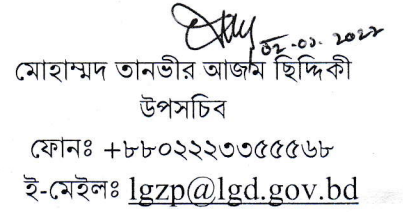 ০২.০১.২০২২
মোহাম্মদ তানভীর আজম ছিদ্দিকী
উপসচিব
ফোনঃ +৮৮০২২২৩৩৫৫৫৬৮
ই-মেইলঃ lgzp@lgd.gov.bd